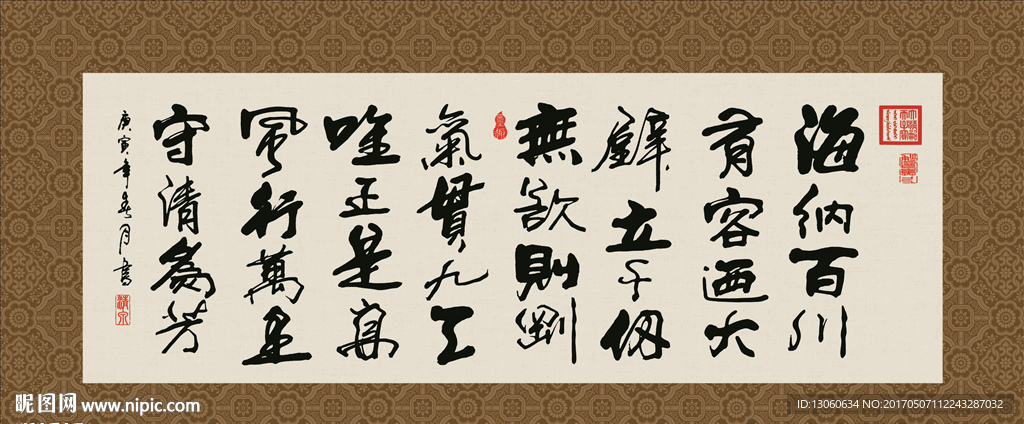 海納百川
有容迺大
壁立千仞
無欲則剛
氣貫九天
唯正是真
風行萬里
守清為芳
庚寅年春月書
昵图网 www.nipic.com
ID:13060634 NO:20170507112243287032